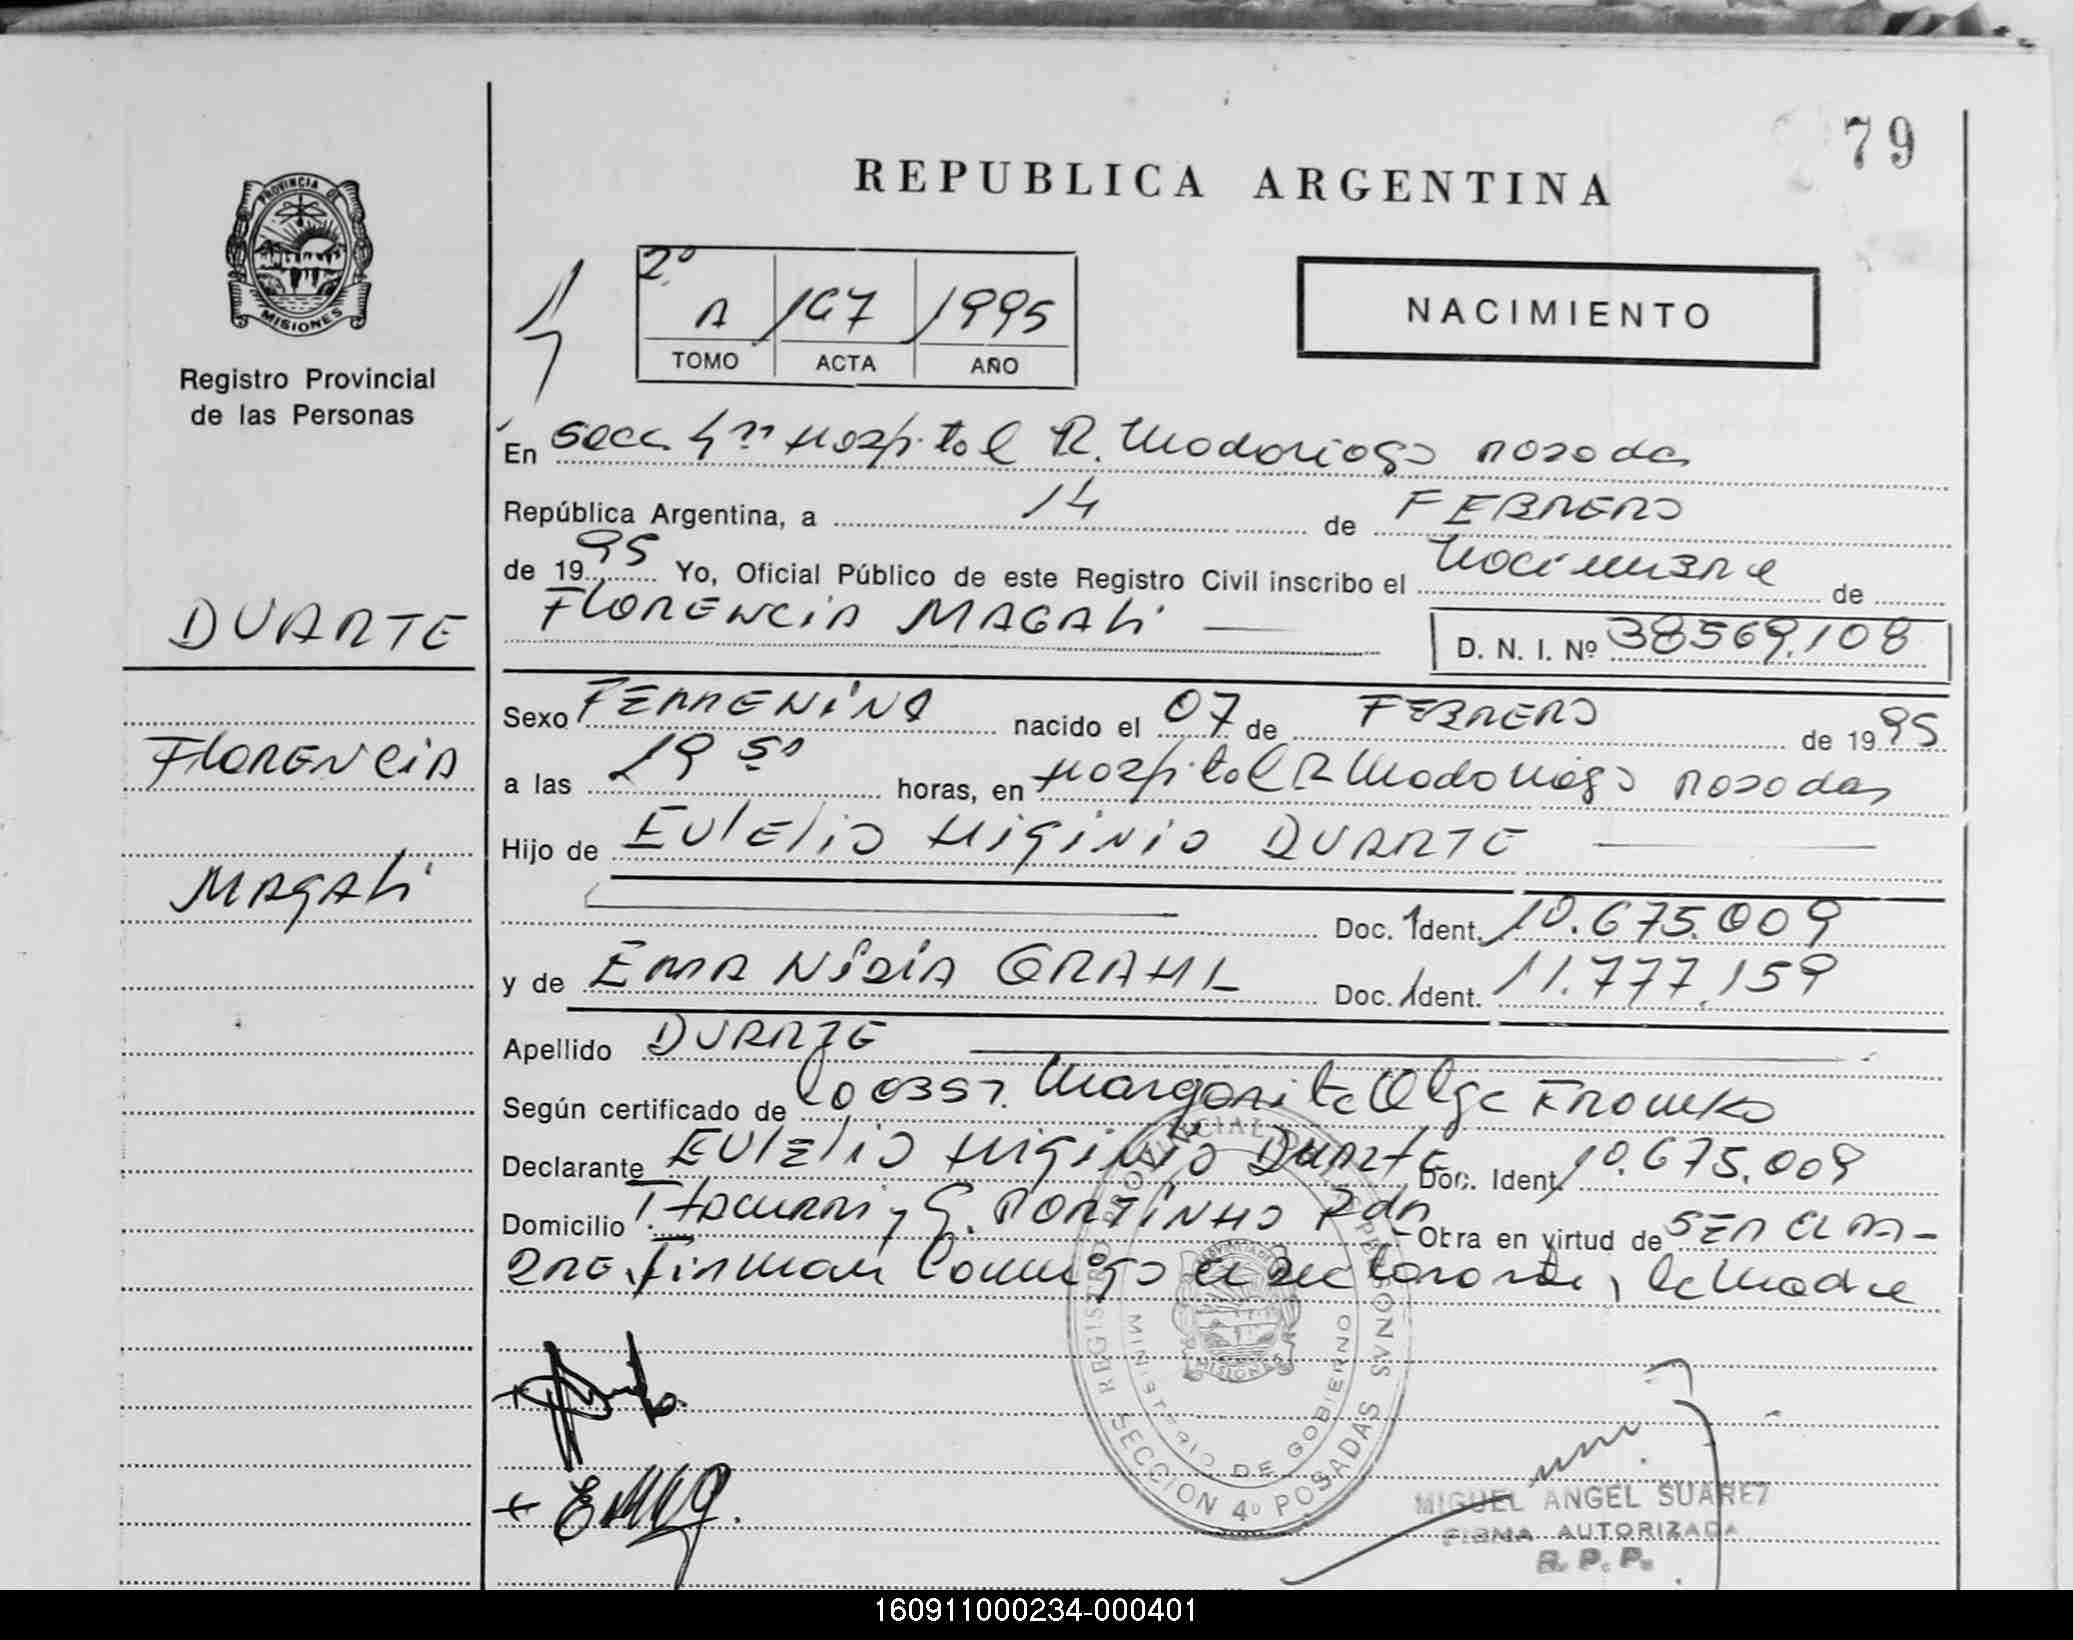 79
REPUBLICA ARGENTINA
PROVINCIA DE
MISIONES
Registro Provincial
de las Personas
2º
A 167 1995
TOMO ACTA AÑO
NACIMIENTO
En Secc 4ta Hospital R. Madariaga Posadas
República Argentina, a 14 de FEBRERO
de 1995 Yo, Oficial Público de este Registro Civil inscribo el Nacimiento de
FLORENCIA MAGALI
D. N. I. Nº 38569.108
DUARTE
FLORENCIA
MAGALI
Sexo FEMENINA nacido el 07 de FEBRERO de 1995
a las 19 50 horas, en Hospital R Madariaga Posadas
Hijo de EULELIO HIGINIO DUARTE
Doc. Ident. 10.675.009
y de EMA NIDIA GRAHL Doc. Ident. 11.777.159
Apellido DUARTE
Según certificado de la obst. Margarita Olga
Declarante EULELIO HIGINIO DUARTE Doc. Ident. 10.675.009
Domicilio Tacuari y G. PORTINHO Pdas Obra en virtud de SER EL PA-
DRE. Firman conmigo el declarante, la Madre
REGISTRO PROVINCIAL DE LAS PERSONAS
MINISTERIO DE GOBIERNO
PROVINCIA DE
MISIONES
SECCION 4º POSADAS
MIGUEL ANGEL SUAREZ
FIRMA AUTORIZADA
R. P. P.
160911000234-000401